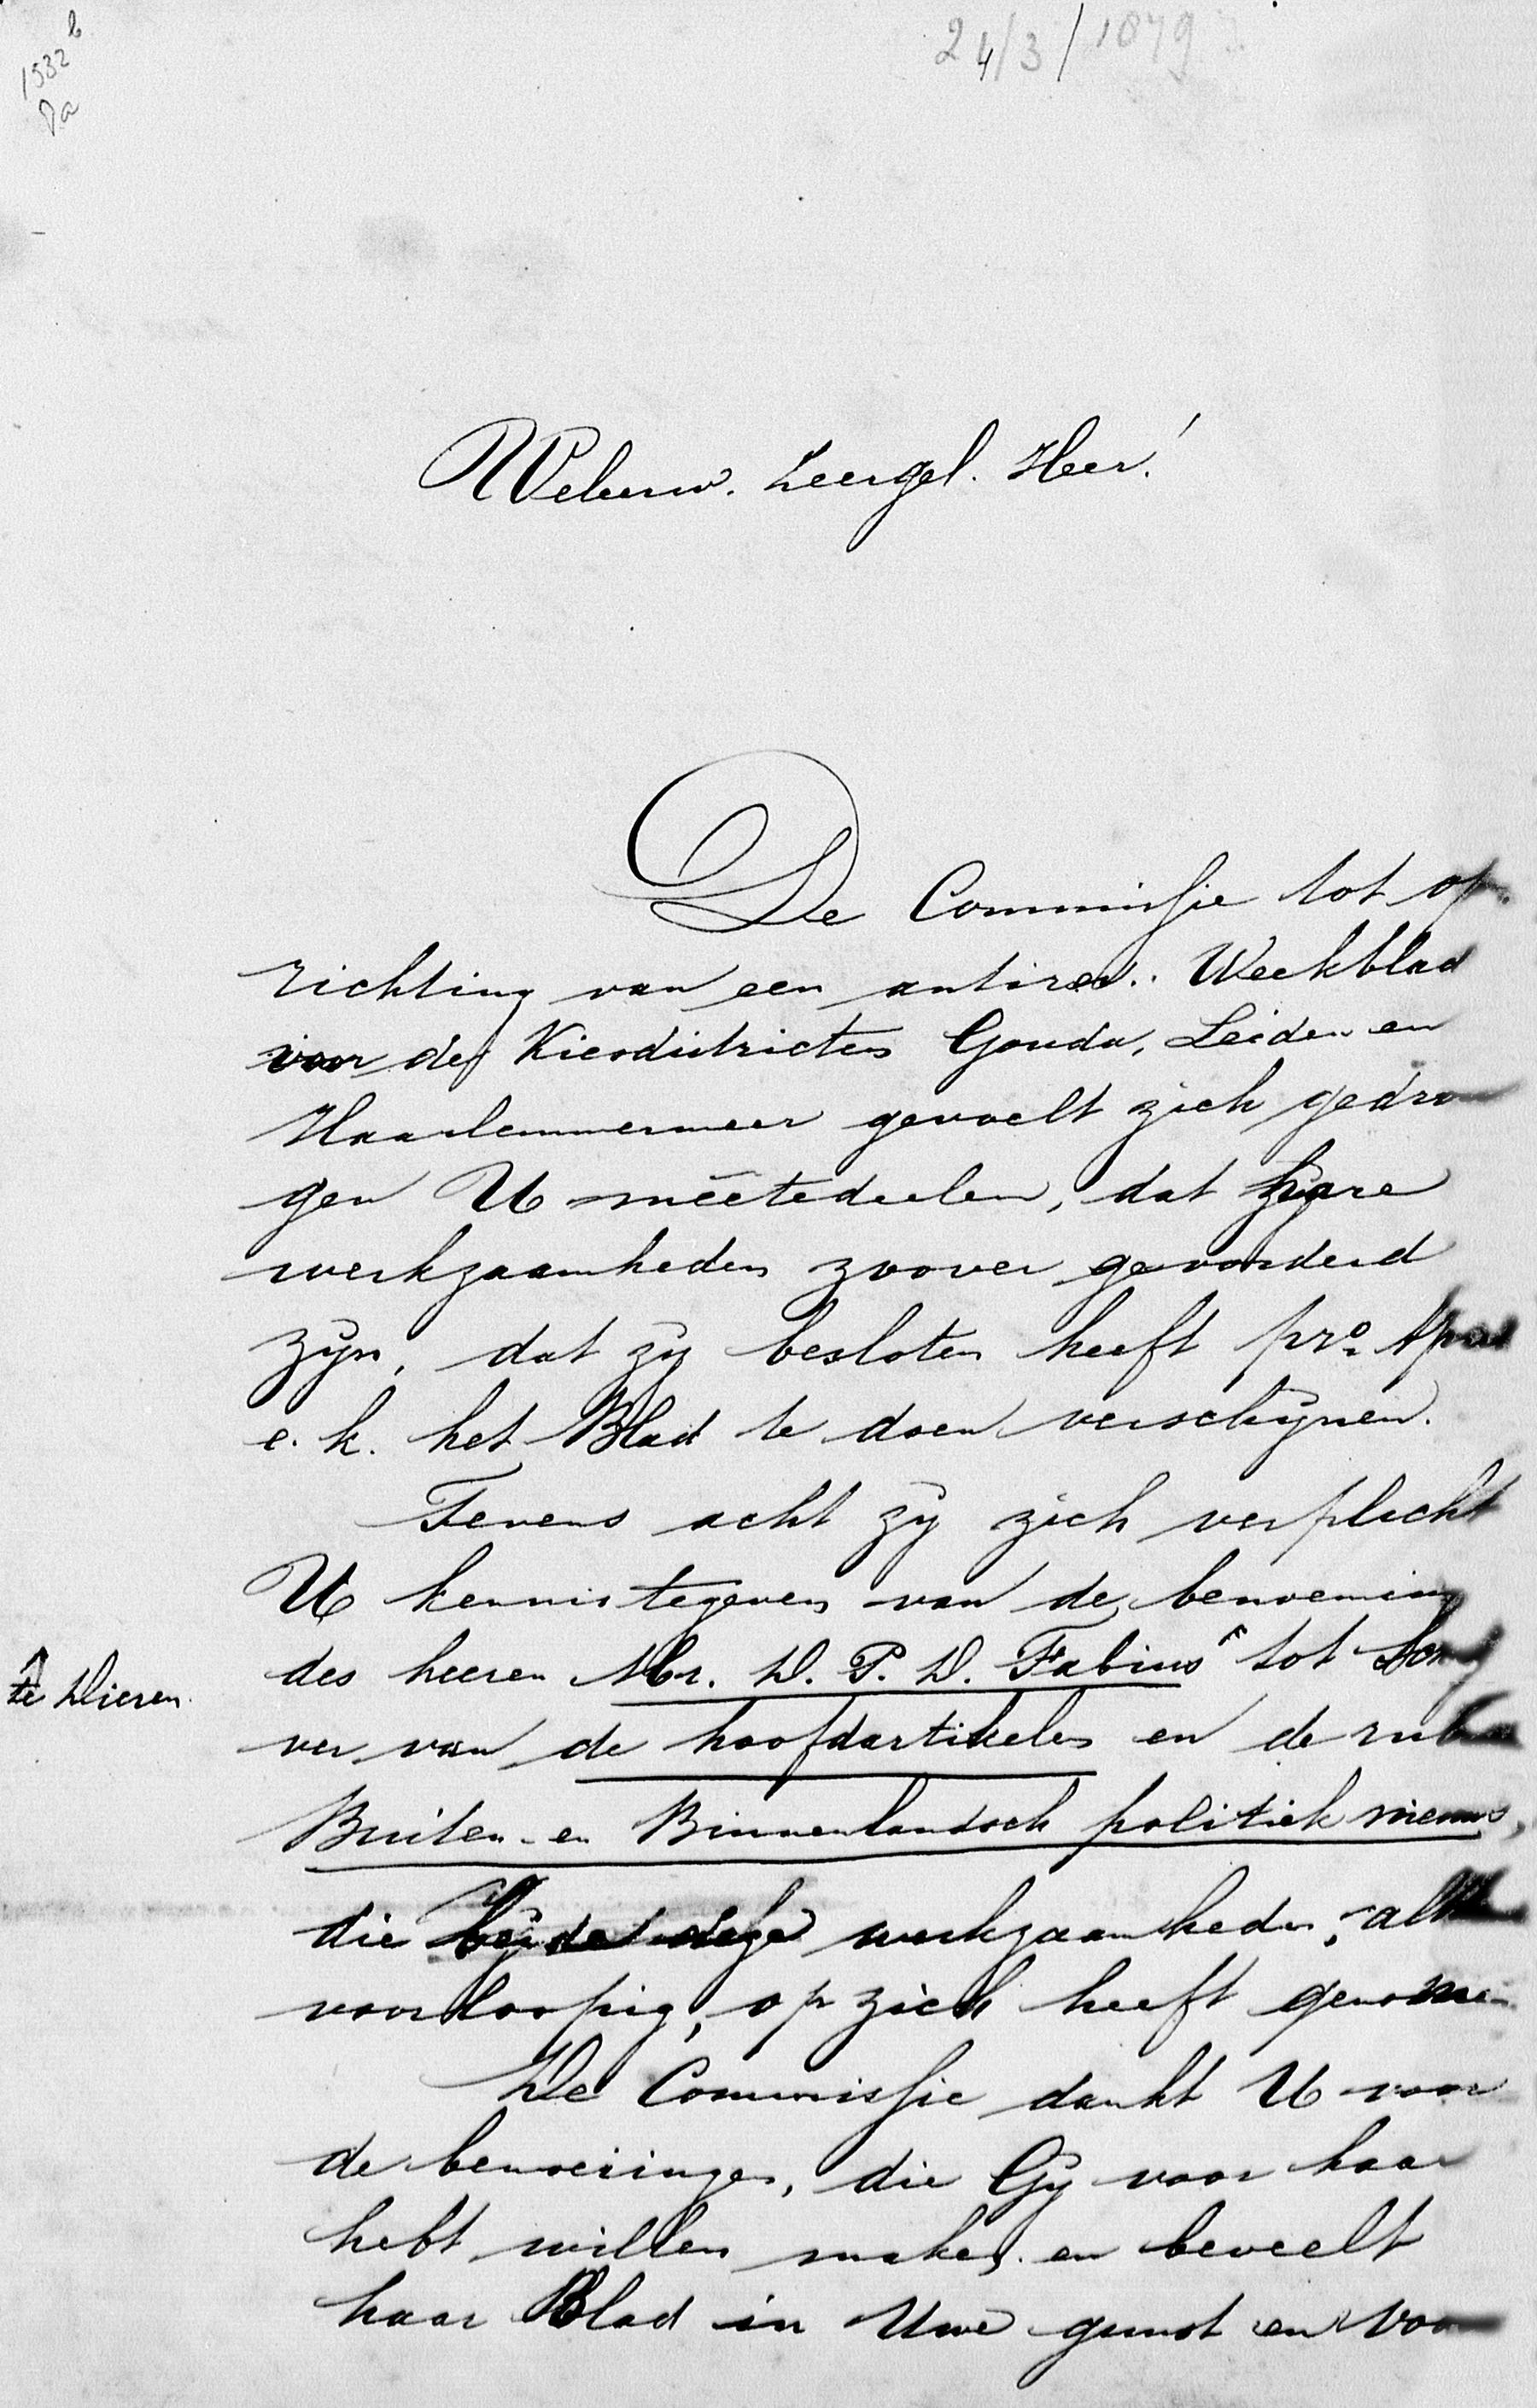 1532 b
Da
24/3/1879
Weleerw. Zeergel. Heer!
De Commissie tot op-
richting van een antirev. Weekblad
voor de Kiesdistricten Gouda, Leiden en
Haarlemmermeer gevoelt zich gedron
gen U méétedeelen, dat hare
werkzaamheden zoover gevorderd
zijn, dat zij besloten heeft pro. April
e. k. het Blad te doen verschijnen.
Tevens acht zij zich verplicht
U kennistegeven van de benoeming
des heeren Mr. D. P. D. Fabius tot
te Dieren
ver van de hoofdartikelen en de
Buiten- en Binnenlandsch politiek nieuws,
die beide deze werkzaamheden,
voorloopig, op zich heeft genomen
De Commissie dankt U voor
de bemoeiingen, die Gij voor haar
hebt willen maken en beveelt
haar Blad in Uwe gunst en voor